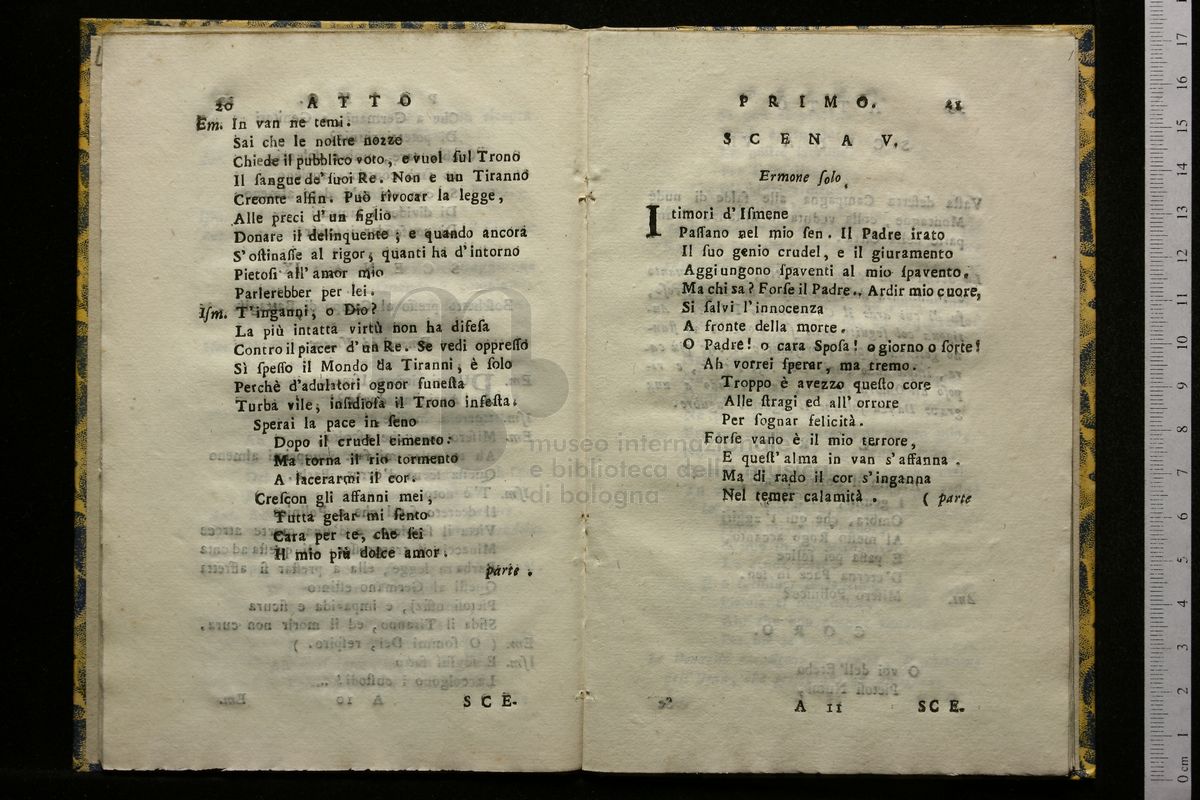 20 A T T O
Em. In van ne temi.
Sai che le noſtre nozze
Chiede il pubblico voto, e vuol ſul Trono
Il ſangue de' ſuoi Re. Non e un Tiranno
Creonte alfin. Può rivocar la legge,
Alle preci d'un figlio
Donare il delinquente; e quando ancora
S'oſtinaſſe al rigor, quanti ha d'intorno
Pietoſi all'amor mio
Parlerebber per lei.
Iſm. T'inganni, o Dio?
La più intatta virtù non ha difeſa
Contro il piacer d'un Re. Se vedi oppreſſo
Sì ſpeſſo il Mondo da Tiranni, è ſolo
Perchè d'adulatori ognor funeſta
Turba vile, inſidioſa il Trono infeſta.
Sperai la pace in ſeno
Dopo il crudel cimento:
Ma torna il rio tormento
A lacerarmi il cor.
Creſcon gli affanni mei,
Tutta gelar mi ſento
Cara per te, che ſei
Il mio più dolce amor.
parte.
S C E-
P R I M O. 21
S C E N A V.
Ermone ſolo.
I timori d'Iſmene
Paſſano nel mio ſen. Il Padre irato
Il ſuo genio crudel, e il giuramento
Aggiungono ſpaventi al mio ſpavento.
Ma chi sa? Forſe il Padre.. Ardir mio cuore,
Si ſalvi l'innocenza
A fronte della morte.
O Padre! o cara Spoſa! o giorno o ſorte!
Ah vorrei ſperar, ma tremo.
Troppo è avezzo queſto core
Alle ſtragi ed all'orrore
Per ſognar felicità.
Forſe vano è il mio terrore,
E queſt'alma in van s'affanna.
Ma di rado il cor s'inganna
Nel temer calamità. ( parte
A 11 SCE.
museo internazionale
e biblioteca della musica
di bologna